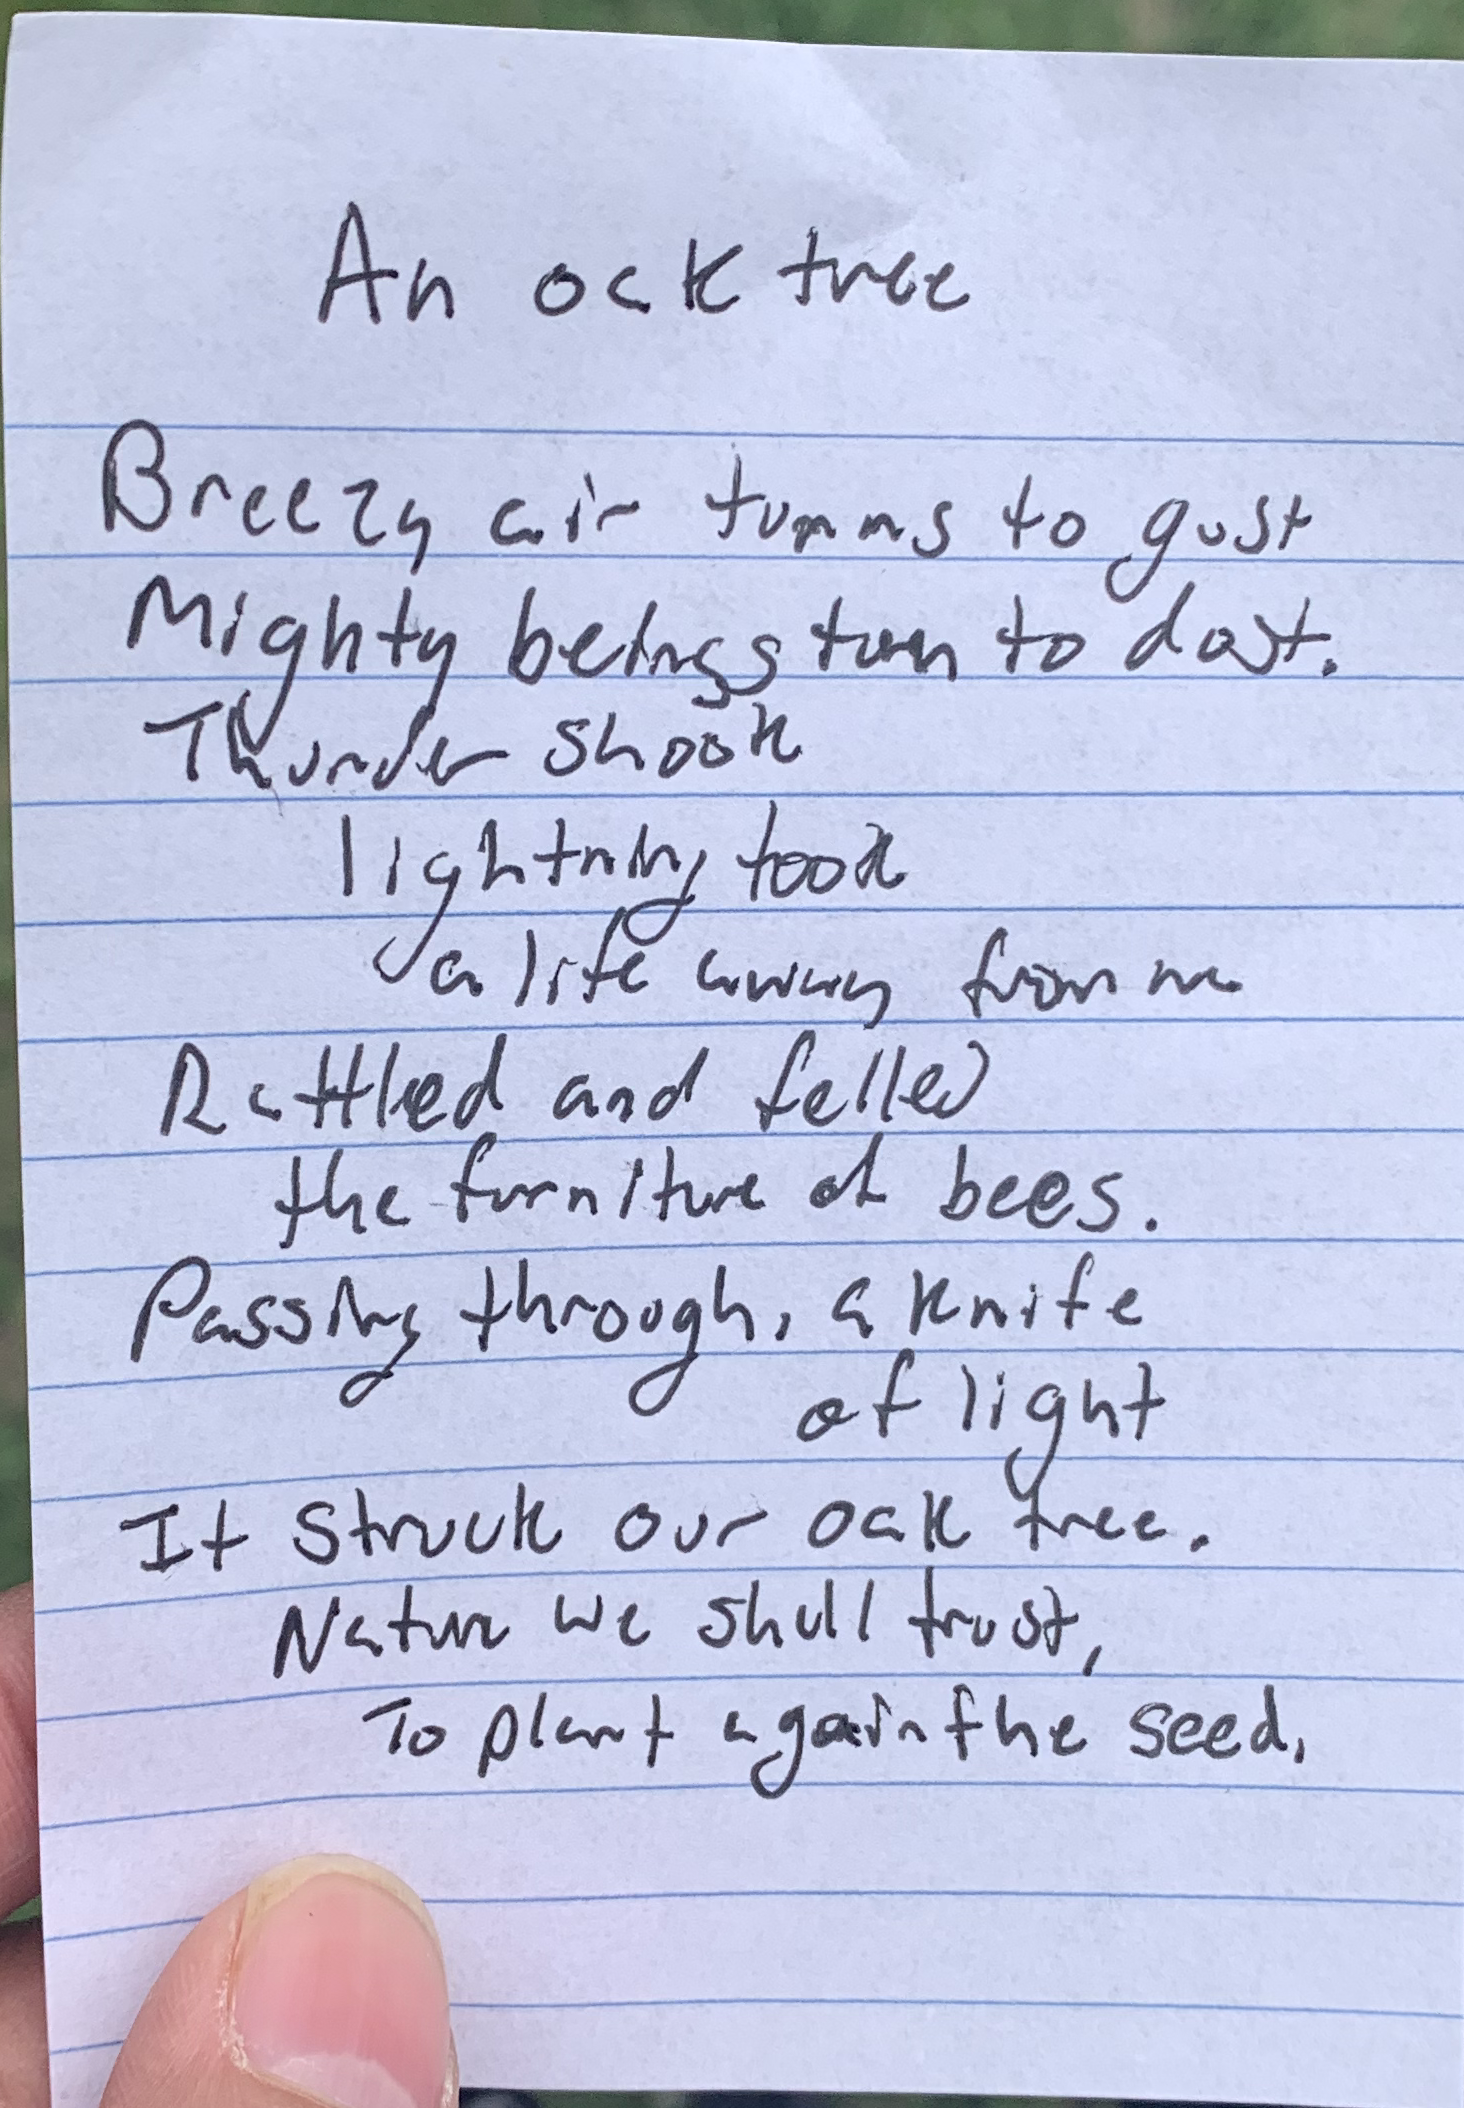 An oak tree
Breezy air turns to gust
Mighty beings turn to dust.
Thunder shook
lightning took
a life away from me
Rattled and felled
the furniture of bees.
Passing through, a knife
of light
It struck our oak tree.
Nature we shall trust,
To plant again the seed.